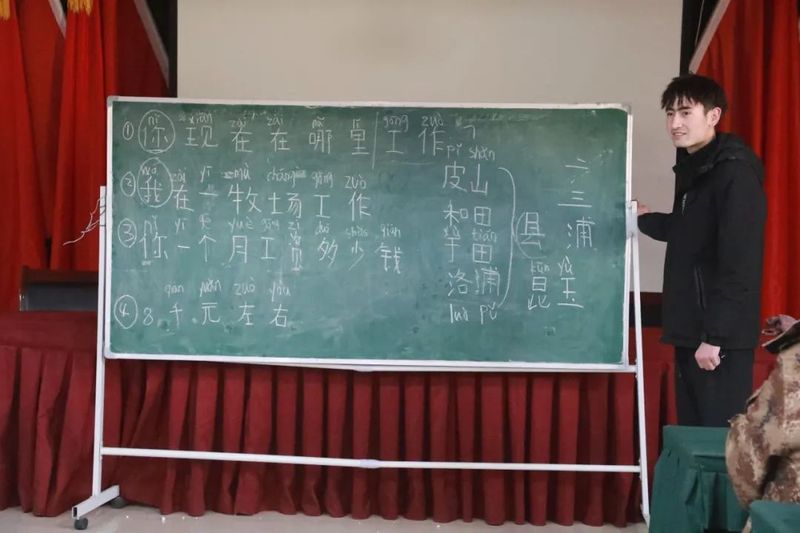 ① 你现在在哪里工作
nǐ xiàn zài zài nǎ lǐ gōng zuò
② 我在一牧场工作
wǒ zài yī mù chǎng gōng zuò
③ 你一个月工资多少钱
nǐ yī yuè gōng zī duō shǎo qián
④ 8.千元左右
qan yuán zuǒ yòu
pí shān
皮山
和田
tián
洛浦
luò pǔ
县
三浦
kūn yù
昆玉